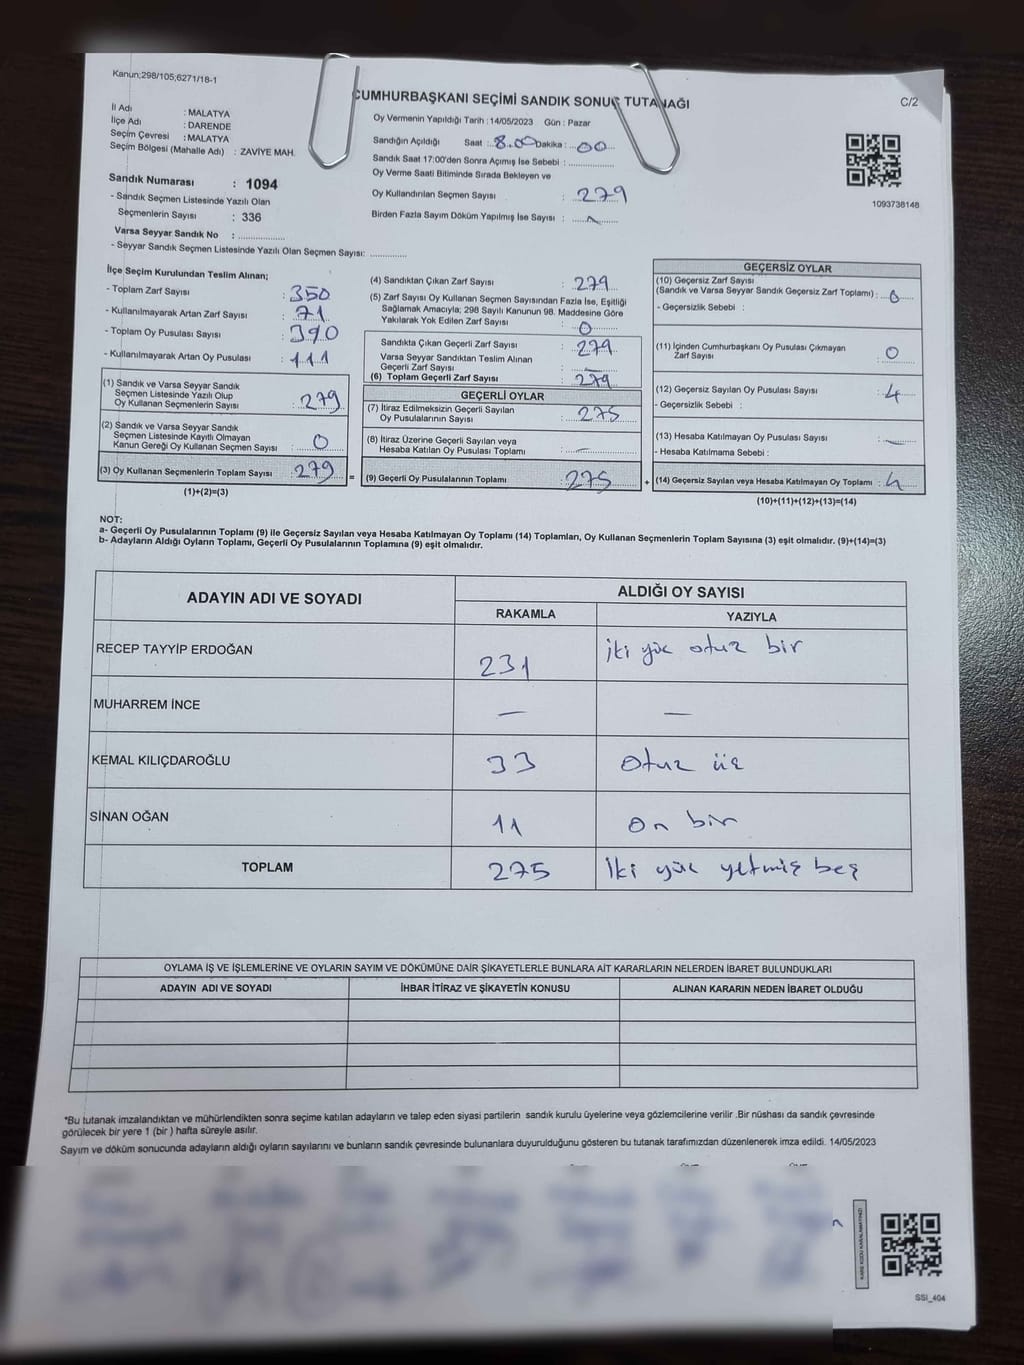 Kanun;298/105;6271/18-1
CUMHURBAŞKANI SEÇİMİ SANDIK SONUÇ TUTANAĞI
C/2
İl Adı : MALATYA
İlçe Adı : DARENDE
Seçim Çevresi : MALATYA
Seçim Bölgesi (Mahalle Adı) : ZAVİYE MAH.
Oy Vermenin Yapıldığı Tarih : 14/05/2023 Gün : Pazar
Sandığın Açıldığı Saat : 8.00 Dakika : 00
Sandık Saat 17:00'den Sonra Açımış İse Sebebi :
Oy Verme Saati Bitiminde Sırada Bekleyen ve
Oy Kullandırılan Seçmen Sayısı : 279
Birden Fazla Sayım Döküm Yapılmış İse Sayısı :
1093738148
Sandık Numarası : 1094
- Sandık Seçmen Listesinde Yazılı Olan
Seçmenlerin Sayısı : 336
Varsa Seyyar Sandık No :
- Seyyar Sandık Seçmen Listesinde Yazılı Olan Seçmen Sayısı:
İlçe Seçim Kurulundan Teslim Alınan;
- Toplam Zarf Sayısı : 350
- Kullanılmayarak Artan Zarf Sayısı : 71
- Toplam Oy Pusulası Sayısı : 390
- Kullanılmayarak Artan Oy Pusulası : 111
(1) Sandık ve Varsa Seyyar Sandık
Seçmen Listesinde Yazılı Olup
Oy Kullanan Seçmenlerin Sayısı : 279
(2) Sandık ve Varsa Seyyar Sandık
Seçmen Listesinde Kayıtlı Olmayan
Kanun Gereği Oy Kullanan Seçmen Sayısı : 0
(3) Oy Kullanan Seçmenlerin Toplam Sayısı : 279 =
(1)+(2)=(3)
(4) Sandıktan Çıkan Zarf Sayısı : 279
(5) Zarf Sayısı Oy Kullanan Seçmen Sayısından Fazla İse, Eşitliği
Sağlamak Amacıyla; 298 Sayılı Kanunun 98. Maddesine Göre
Yakılarak Yok Edilen Zarf Sayısı : 0
Sandıkta Çıkan Geçerli Zarf Sayısı : 279
Varsa Seyyar Sandıktan Teslim Alınan
Geçerli Zarf Sayısı : —
(6) Toplam Geçerli Zarf Sayısı : 279
GEÇERLİ OYLAR
(7) İtiraz Edilmeksizin Geçerli Sayılan
Oy Pusulalarının Sayısı : 275
(8) İtiraz Üzerine Geçerli Sayılan veya
Hesaba Katılan Oy Pusulası Toplamı : —
(9) Geçerli Oy Pusulalarının Toplamı : 275 +
GEÇERSİZ OYLAR
(10) Geçersiz Zarf Sayısı
(Sandık ve Varsa Seyyar Sandık Geçersiz Zarf Toplamı) : 0
- Geçersizlik Sebebi :
(11) İçinden Cumhurbaşkanı Oy Pusulası Çıkmayan
Zarf Sayısı : 0
(12) Geçersiz Sayılan Oy Pusulası Sayısı : 4
- Geçersizlik Sebebi :
(13) Hesaba Katılmayan Oy Pusulası Sayısı : —
- Hesaba Katılmama Sebebi :
(14) Geçersiz Sayılan veya Hesaba Katılmayan Oy Toplamı : 4
(10)+(11)+(12)+(13)=(14)
NOT:
a- Geçerli Oy Pusulalarının Toplamı (9) ile Geçersiz Sayılan veya Hesaba Katılmayan Oy Toplamı (14) Toplamları, Oy Kullanan Seçmenlerin Toplam Sayısına (3) eşit olmalıdır. (9)+(14)=(3)
b- Adayların Aldığı Oyların Toplamı, Geçerli Oy Pusulalarının Toplamına (9) eşit olmalıdır.
ADAYIN ADI VE SOYADI ALDIĞI OY SAYISI
RAKAMLA YAZIYLA
RECEP TAYYİP ERDOĞAN 231 iki yüz otuz bir
MUHARREM İNCE — —
KEMAL KILIÇDAROĞLU 33 Otuz üç
SİNAN OĞAN 11 On bir
TOPLAM 275 İki yüz yetmiş beş
OYLAMA İŞ VE İŞLEMLERİNE VE OYLARIN SAYIM VE DÖKÜMÜNE DAİR ŞİKAYETLERLE BUNLARA AİT KARARLARIN NELERDEN İBARET BULUNDUKLARI
ADAYIN ADI VE SOYADI İHBAR İTİRAZ VE ŞİKAYETİN KONUSU ALINAN KARARIN NEDEN İBARET OLDUĞU
*Bu tutanak imzalandıktan ve mühürlendikten sonra seçime katılan adayların ve talep eden siyasi partilerin sandık kurulu üyelerine veya gözlemcilerine verilir .Bir nüshası da sandık çevresinde
görülecek bir yere 1 (bir ) hafta süreyle asılır.
Sayım ve döküm sonucunda adayların aldığı oyların sayılarını ve bunların sandık çevresinde bulunanlara duyurulduğunu gösteren bu tutanak tarafımızdan düzenlenerek imza edildi. 14/05/2023
KARE KODU KARALAMAYINIZ!
SSI_404